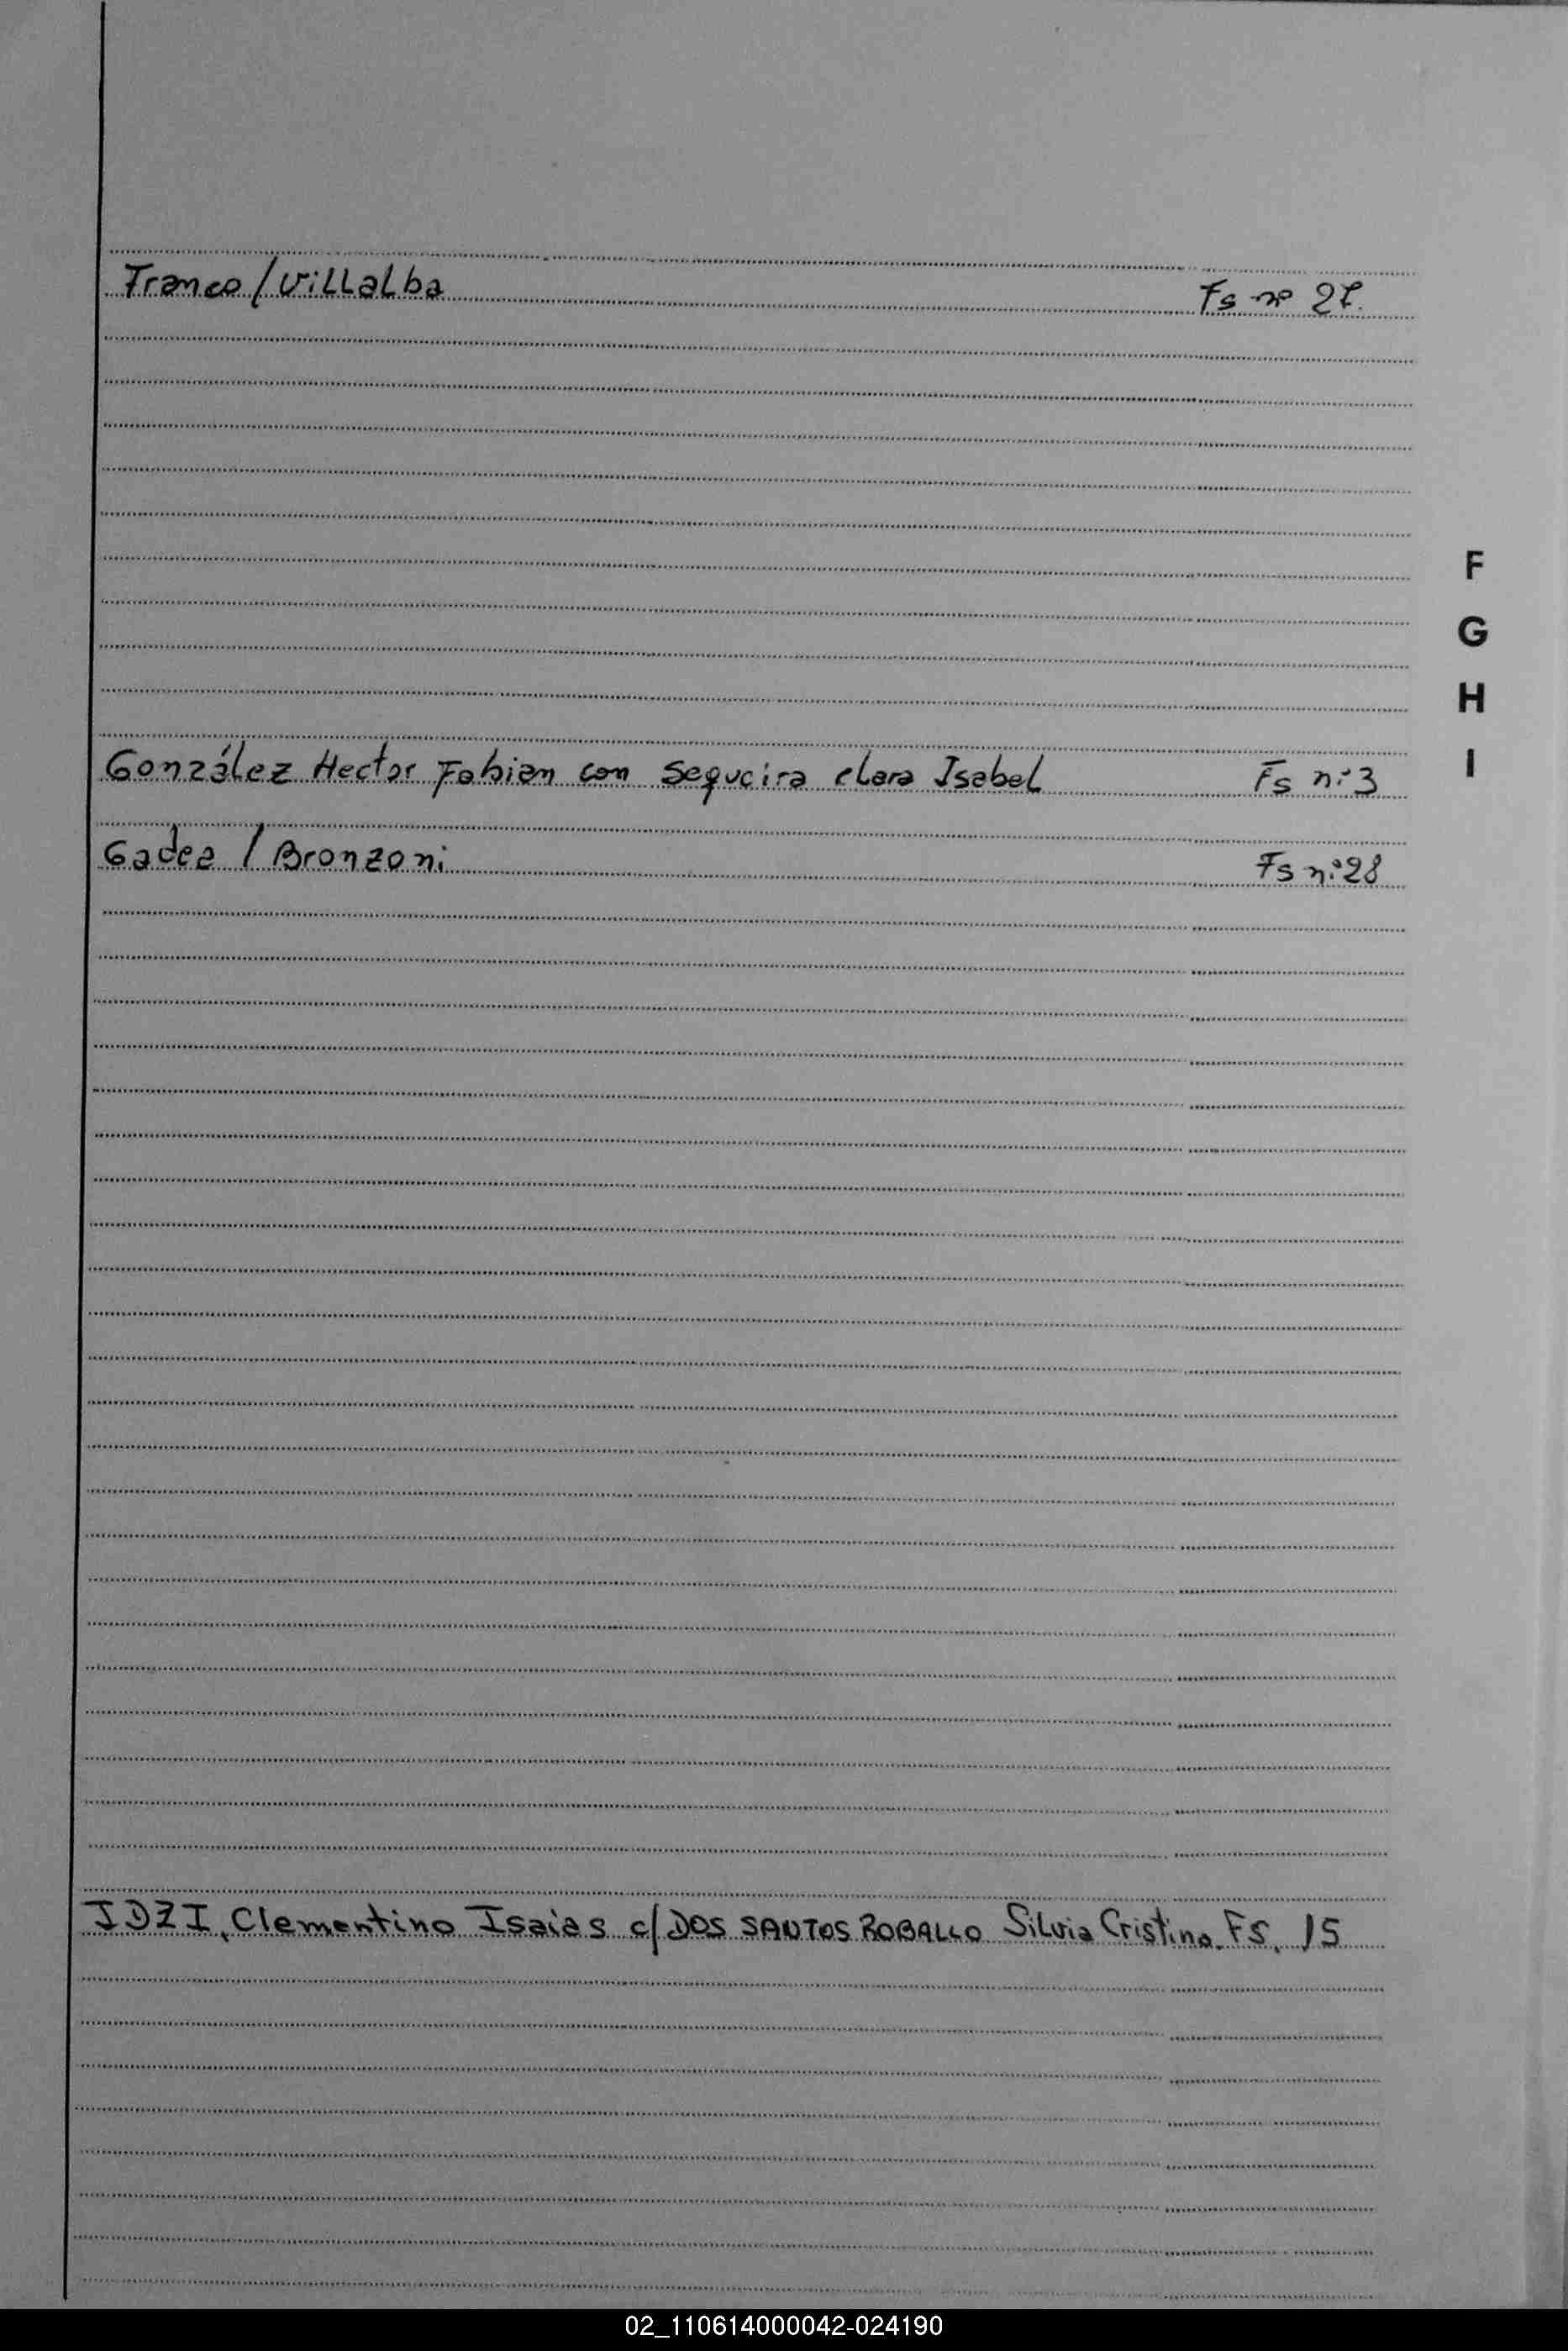 Franco/Villalba Fs nº 27.
F
G
H
I
González Hector Fabian con Sequeira Clara Isabel Fs n:º3
Gadea / Bronzoni Fs n:º28
IDZI, Clementino Isaias c/ DOS SANTOS ROBALLO Silvia Cristina. FS. 15
02_110614000042-024190